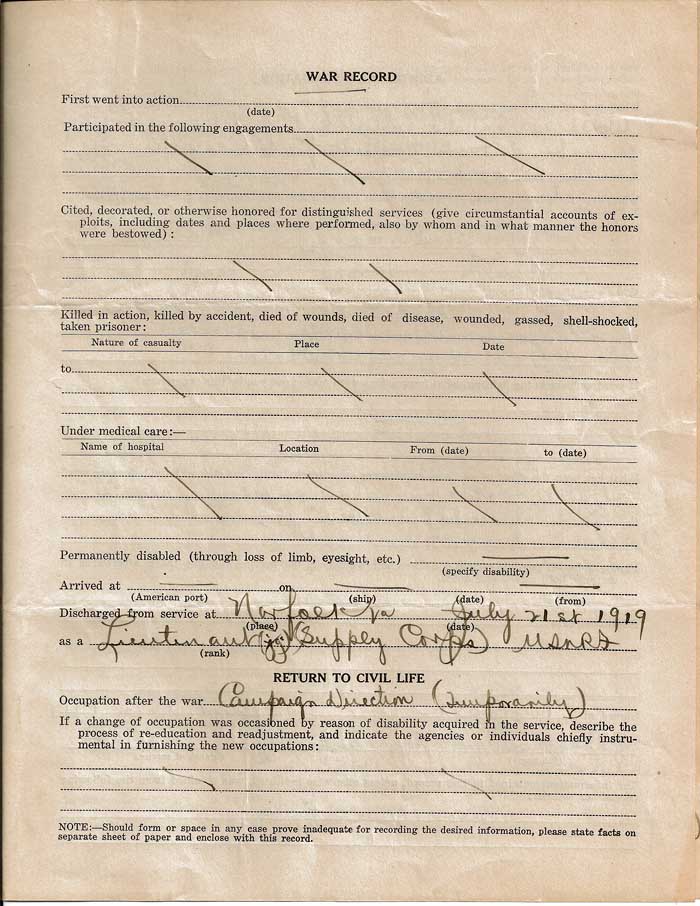 WAR RECORD
First went into action
(date)
Participated in the following engagements
Cited, decorated, or otherwise honored for distinguished services (give circumstantial accounts of ex-
ploits, including dates and places where performed, also by whom and in what manner the honors
were bestowed) :
Killed in action, killed by accident, died of wounds, died of disease, wounded, gassed, shell-shocked,
taken prisoner:
Nature of casualty Place Date
to
Under medical care:—
Name of hospital Location From (date) to (date)
Permanently disabled (through loss of limb, eyesight, etc.)
(specify disability)
Arrived at on
(American port) (ship) (date) (from)
Discharged from service at Norfolk Va July 21st 1919
(place) (date)
as a Lieutenant (jg) (Supply Corps) USNRF
(rank)
RETURN TO CIVIL LIFE
Occupation after the war Campaign Direction (Temporarily)
If a change of occupation was occasioned by reason of disability acquired in the service, describe the
process of re-education and readjustment, and indicate the agencies or individuals chiefly instru-
mental in furnishing the new occupations:
NOTE:—Should form or space in any case prove inadequate for recording the desired information, please state facts on
separate sheet of paper and enclose with this record.